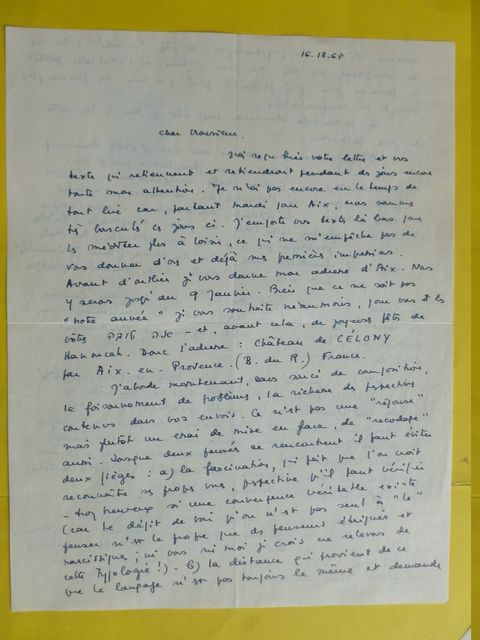 16.12.65
Cher Monsieur.
J'ai reçu hier votre lettre et vos
textes qui retiennent et retiendront pendant des jours encore
toute mon attention. Je n'ai pas encore eu le temps de
tout lire car, partant mardi pour Aix, nous sommes
très bousculés ces jours ci. J'emporte vos textes là bas pour
les méditer plus à loisir, ce qui ne m'empêche pas de
vous donner d'ores et déjà mes premières impressions.
Avant d'oublier je vous donne mon adresse d'Aix. Nous
y serons jusqu'au 9 Janvier. Bien que ce ne soit pas
"notre année" je vous souhaite néanmoins, pour vous et les
vôtres שנה טובה – et, avant cela, de joyeuses fêtes de
Hanoucah. Donc l'adresse : Château de CÉLONY
par Aix-en-Provence. (B. du R.) France.
J'aborde maintenant, sans souci de composition,
le foisonnement de problèmes, la richesse des perspectives
contenus dans vos envois. Ce n'est pas une "réponse"
mais plutôt un essai de mise en face, de "recodage"
aussi. Lorsque deux pensées se rencontrent il faut éviter
deux pièges : a) la fascination, qui fait que l'on croit
reconnaître ses propres vues, perspective qu'il faut vérifier
– trop heureux si une convergence véritable existe
(car le dépit de voir qu'on n'est pas seul à "le"
penser n'est le propre que des penseurs étriqués et
narcissiques ; ni vous ni moi je crois ne relevons de
cette typologie !) – b) la distance qui provient de ce
que le langage n'est pas toujours le même et demande